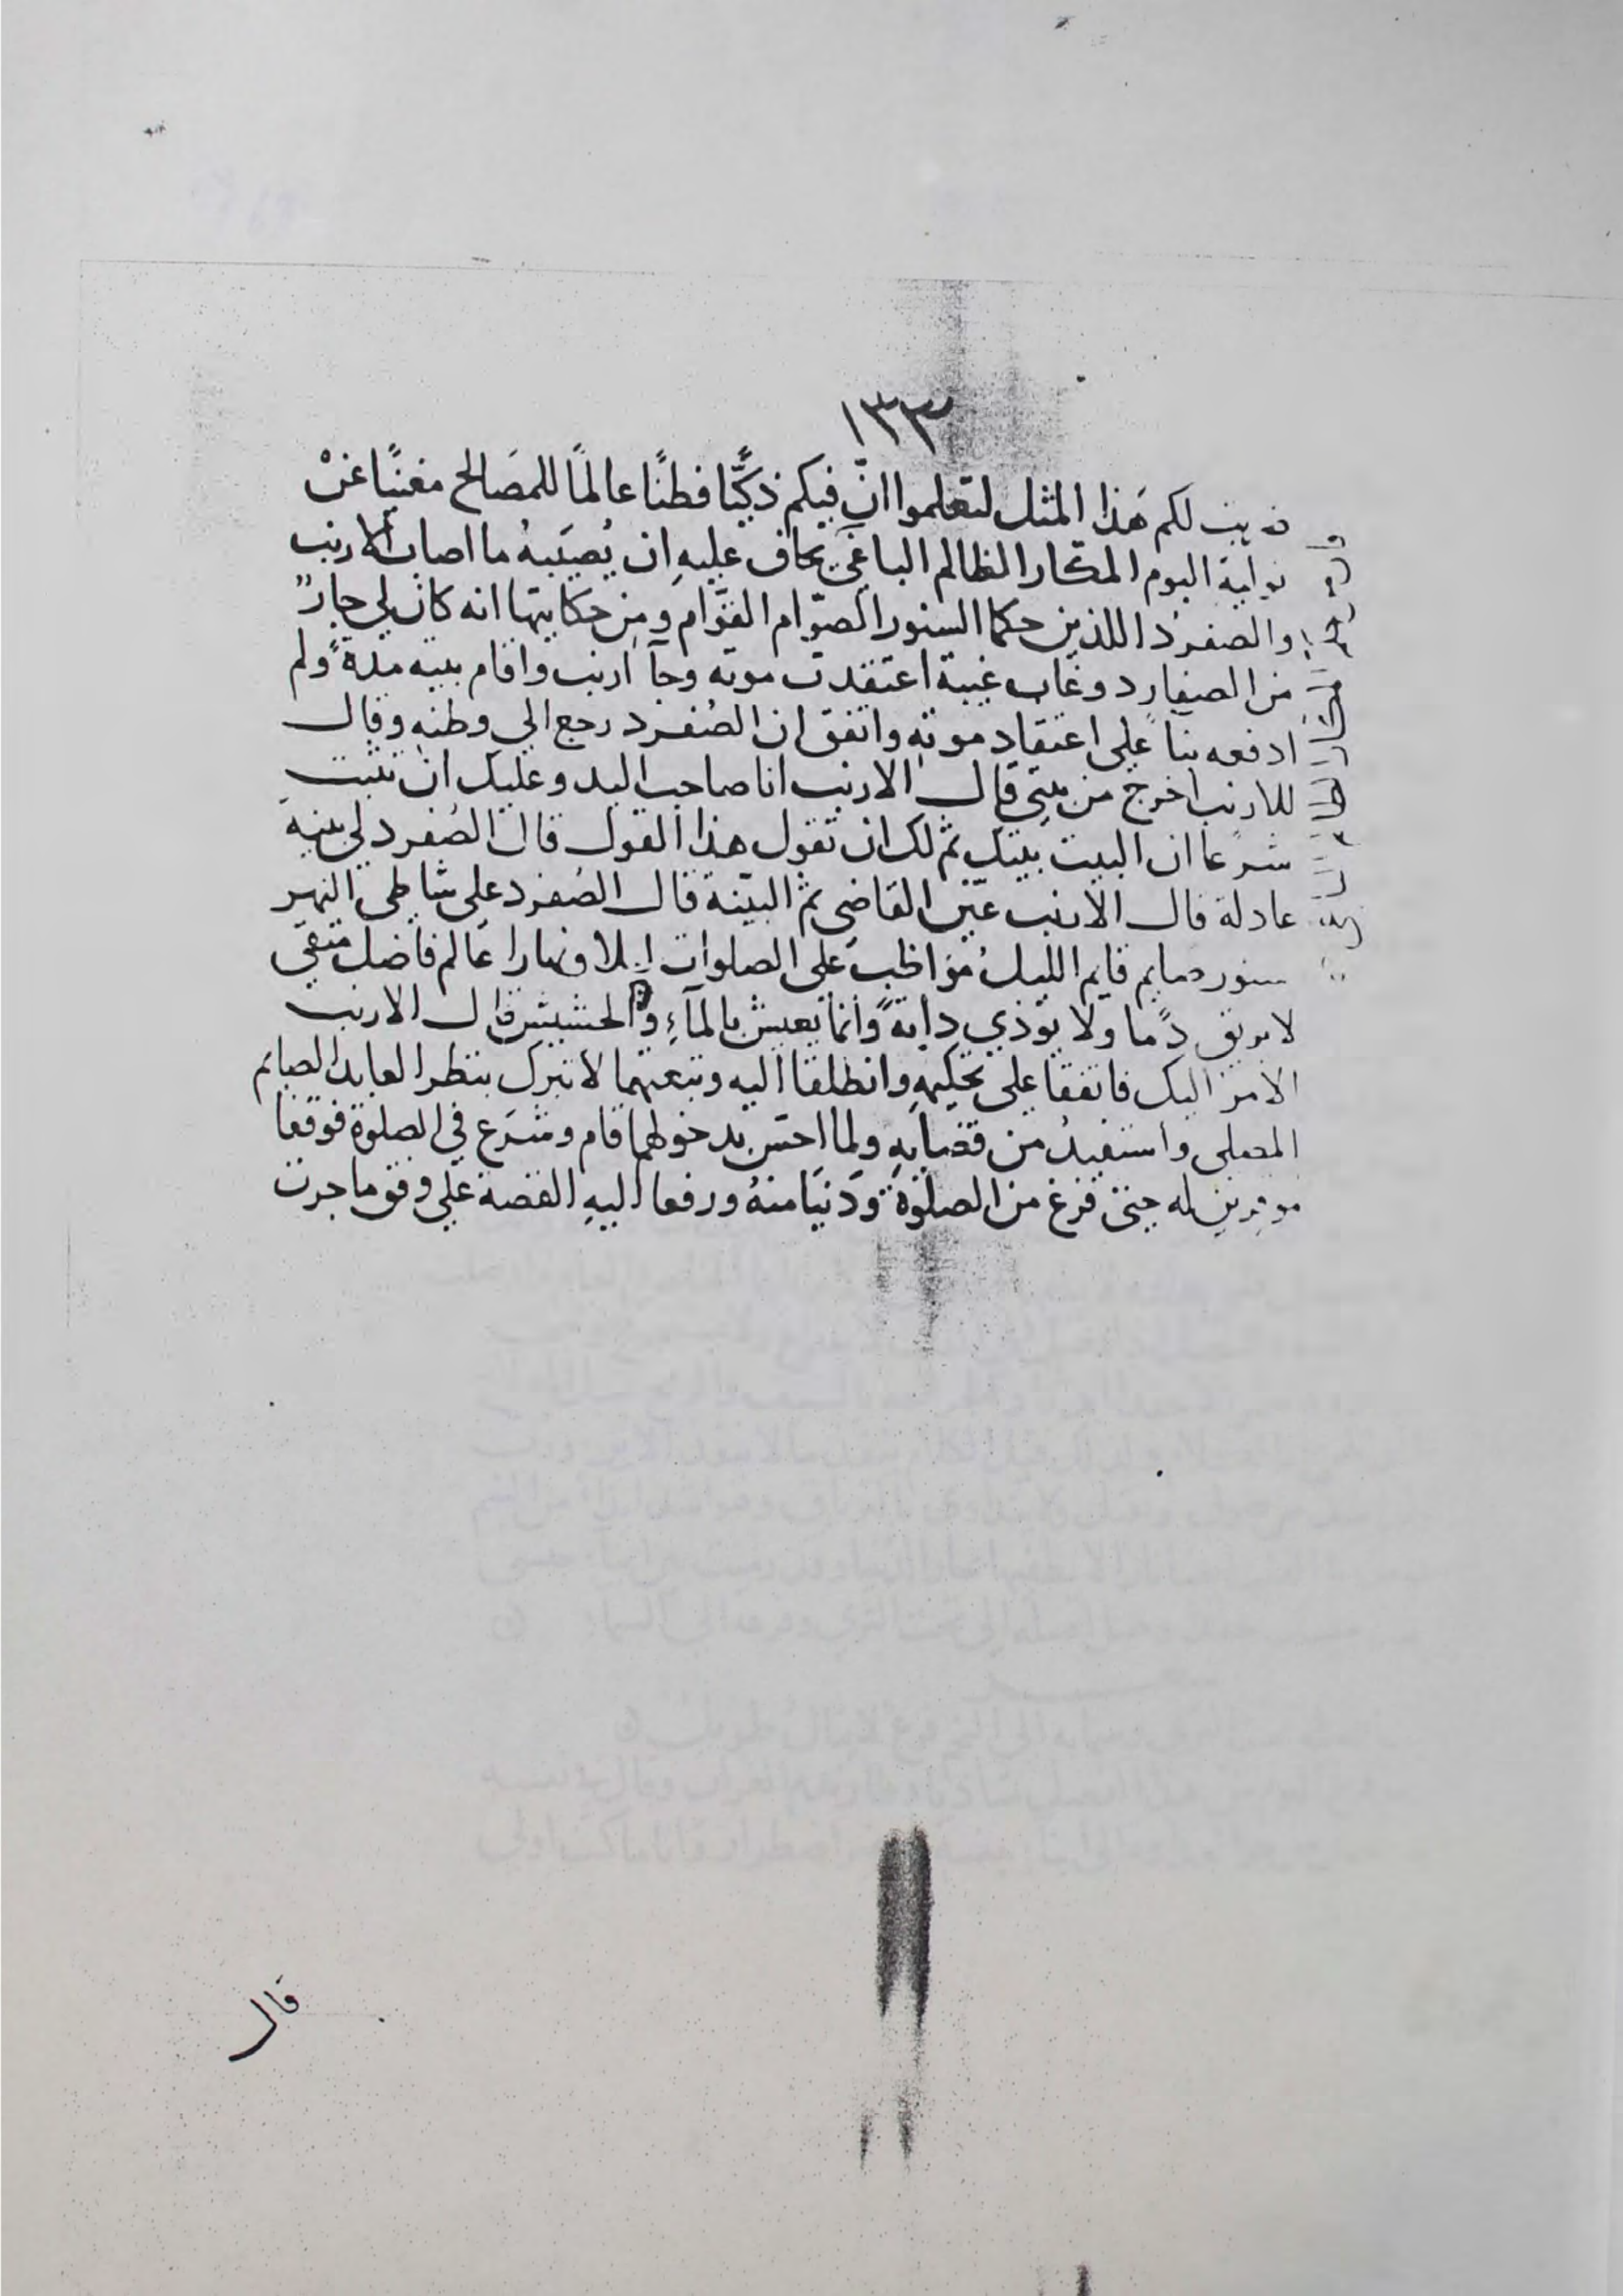 ١٣٣
لكم هذا المثل لتعلموا انّ فيكم ذكيًّا فطنًا عالمًا للمصَالح مغنيًا عَنْ
تولية البوم المكار الظالم الباغي يخاف عليهِ ان يُصيَبهُ ما اصاب الارنب
والصفرد اللذين حكما السنور الصوّام القوَّام ومن حكايتها انه كان لي جارٌ
من الصفارد وغاب غيبة اعتقدت موته وجآ ارنب واقام ببيته مدةً ولم
ادفعه بنآ على اعتقاد موتهِ واتفق ان الصُفرد رجع الي وطنهِ وقال
للارنب اخرج من بيتي قال الارنب انا صاحب اليد وعليك ان تثبت
شرعًا ان البيت بيتك ثم لك ان تقول هذا القول قال الصُفرد لي بينة
عادلة قال الارنب عيّن القاضي ثم البيّنة قال الصُفرد علي شاطي النهر
سنور صايم قايم الليل مُواظب على الصلوات ليلا ونهارا عَالم فاضل متقي
لا يريق دمًا ولا يوذي دابةً وانما يعيش بالمآءِ والحشيش قال الارنب
الامر اليك فاتفقا على تحكيمهِ وانطلقا اليه وتبعتهما لاتبرك بنظر العابد الصايم
المصلى واستفيدُ من قضايهِ ولما احسّ بدخولهما قام وشرَع في الصلوة فوقفا
موقرين له حتى فرغ من الصلوة ودَنيَا منهُ ورفعا اليهِ القصة علي وفق ما جرت
قال